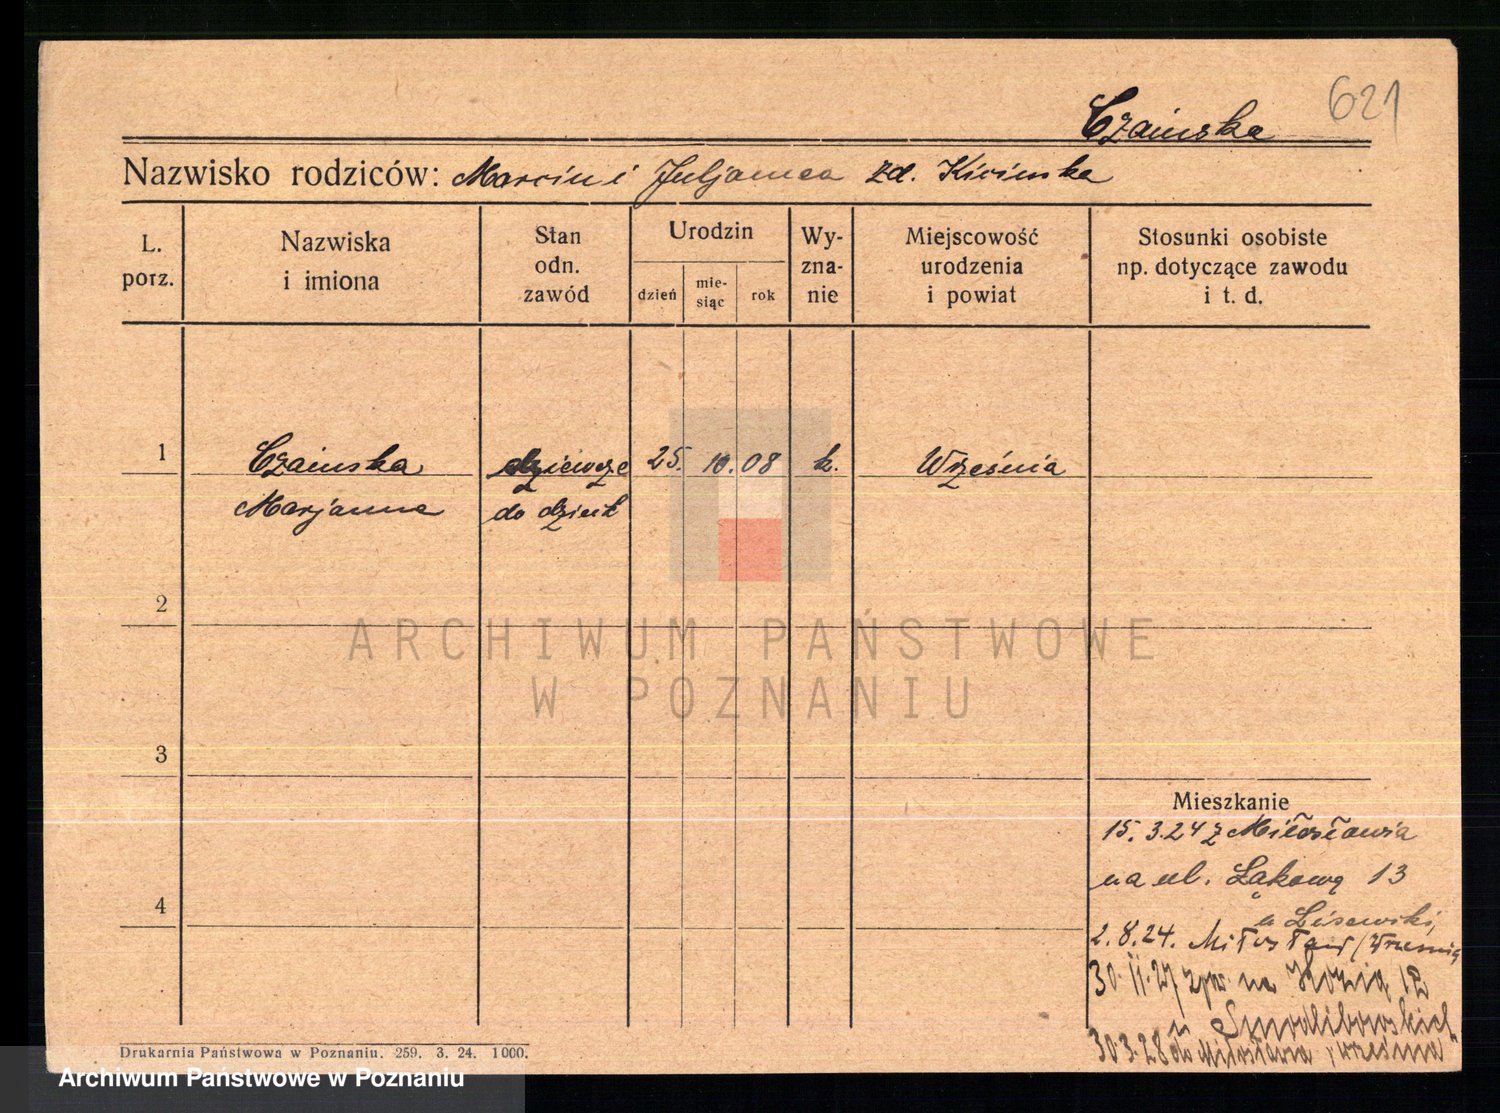 621
Czainska
Nazwisko rodziców: Marcin i Juljanna zd. Kicinska
L. porz.
Nazwiska i imiona
Stan odn. zawód
Urodzin
dzień
mie-siąc
rok
Wy-zna-nie
Miejscowość urodzenia i powiat
Stosunki osobiste np. dotyczące zawodu i t. d.
1 Czainska dziewczę 25. 10. 08 k. Września
Marjanna do dzieck
2
3
4
Mieszkanie
15. 3. 24 z Miłosławia
na ul. Łąkową 13
u Lisewski,
2. 8. 24. Miłosław / Wrzesnia
30. 11. 27 na 12
u Smodlibowskich
30. 3. 28 do Miłosława, wrzesnia
Drukarnia Państwowa w Poznaniu. 259. 3. 24. 1000.
ARCHIWUM PAŃSTWOWE
W POZNANIU
Archiwum Państwowe w Poznaniu